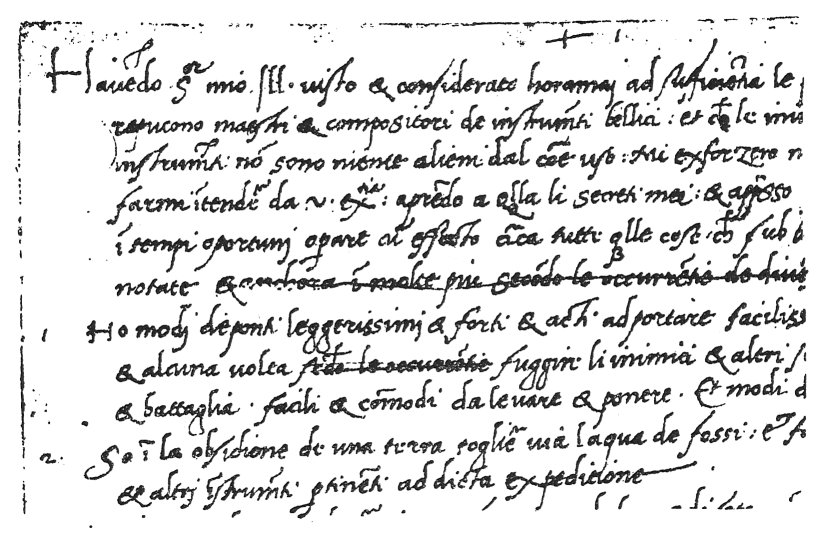 Havēdo Sor mio Ill. visto & considerato horamaj ad sufficiētia le
reputono maestri & compositori de instrumti bellici: et ch le inv
instrumti nō sono niente alieni dal cōe uso: Mi exforzero n
farmi ītender da v. ex.tia: aprēdo a qlla li secreti mei: & appsso
ī tempi oportunj opare cū effecto circa tutte qlle cose ch sub b
notate & anchora ī molte piu secōdo le occurrētie de div
1. Ho modj de ponti leggerissimj & forti & acti ad portare faciliss
& alcuna volta secdo le occurētie fuggire li inimici & altri s
& battaglia. facili & cōmodi da levare & ponere. Et modi d
2. So ī la obsidione de una terra toglier via laqua de fossi: et f
& altrj īstrumti ptinēti ad dicta expeditione